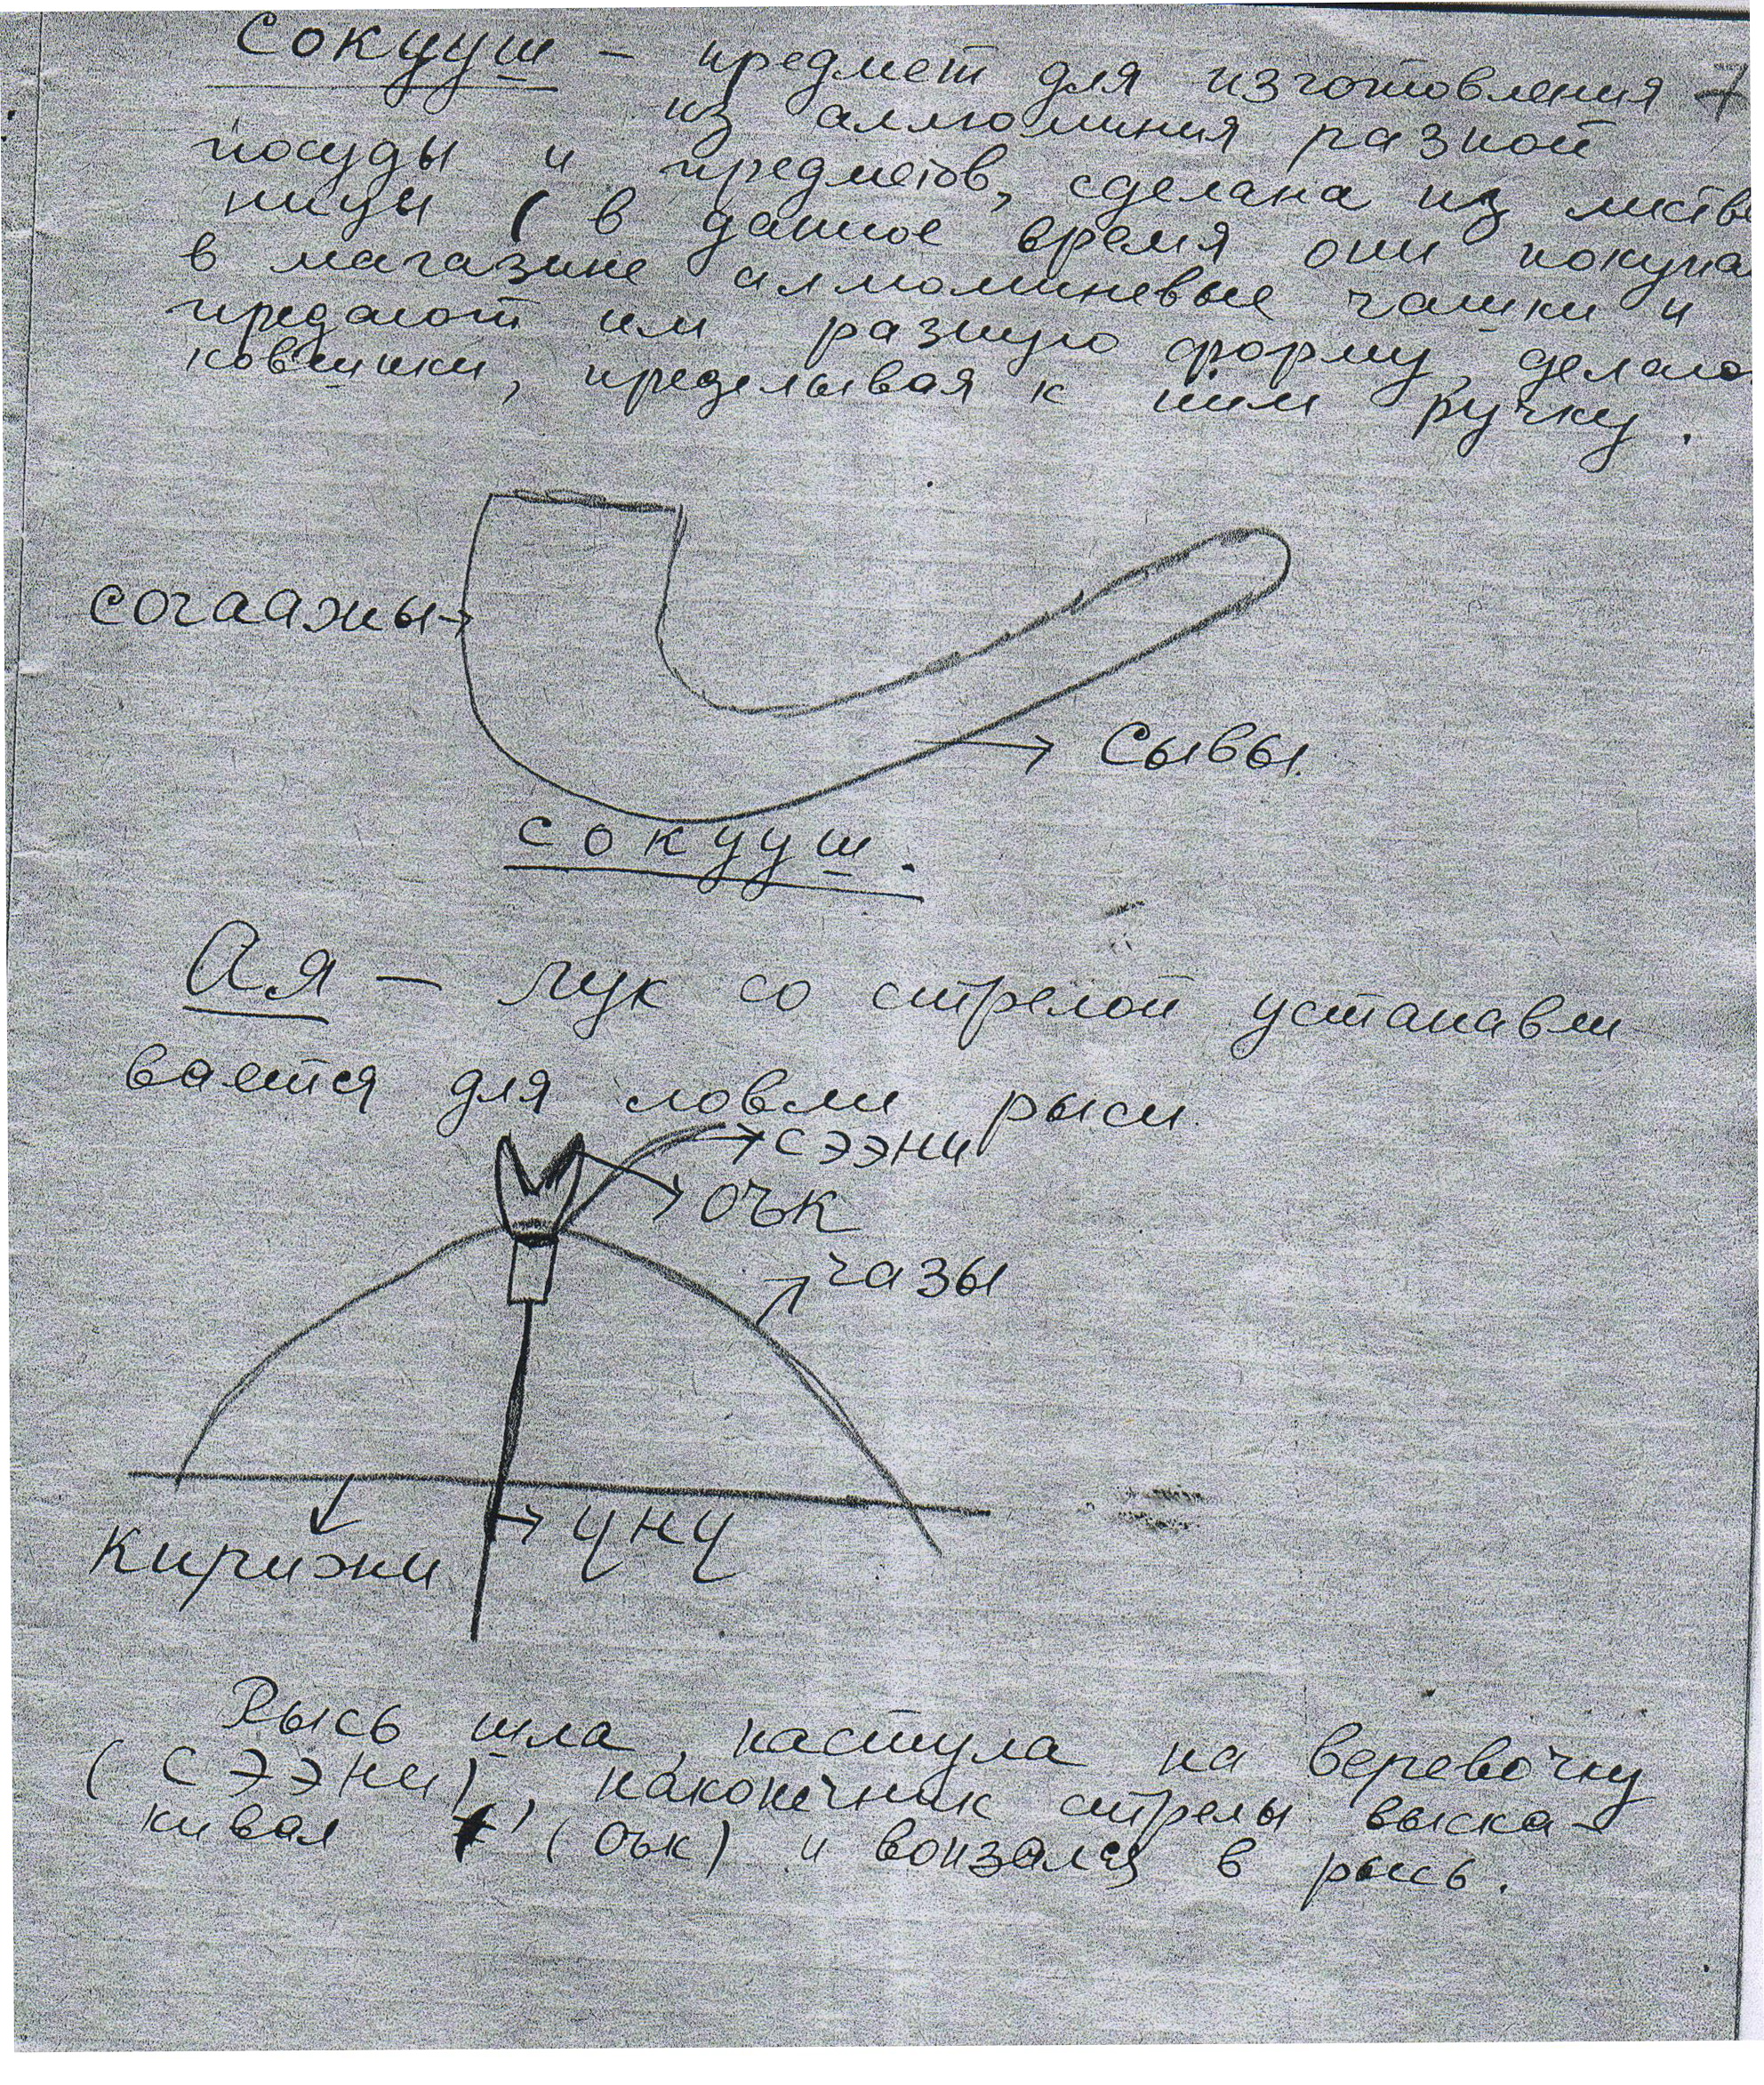 Сокууш – предмет для изготовления 7
из аллюминия разной
посуды и предметов, сделана из листве
ницы ( в данное время они покупа
в магазине аллюминевые чашки и
предают им разную форму, делаю
ковшики, приделывая к ним ручку.
согаажы
Сывы.
сокууш.
Ая – лук со стрелой устанавли
вается для ловли рыси.
сээни
оък
чазы
уну
Кирижи
Рысь шла, наступла на веревочку
(Сээни), наконечник стрелы выска-
кивал (оък) и вонзался в рысь.